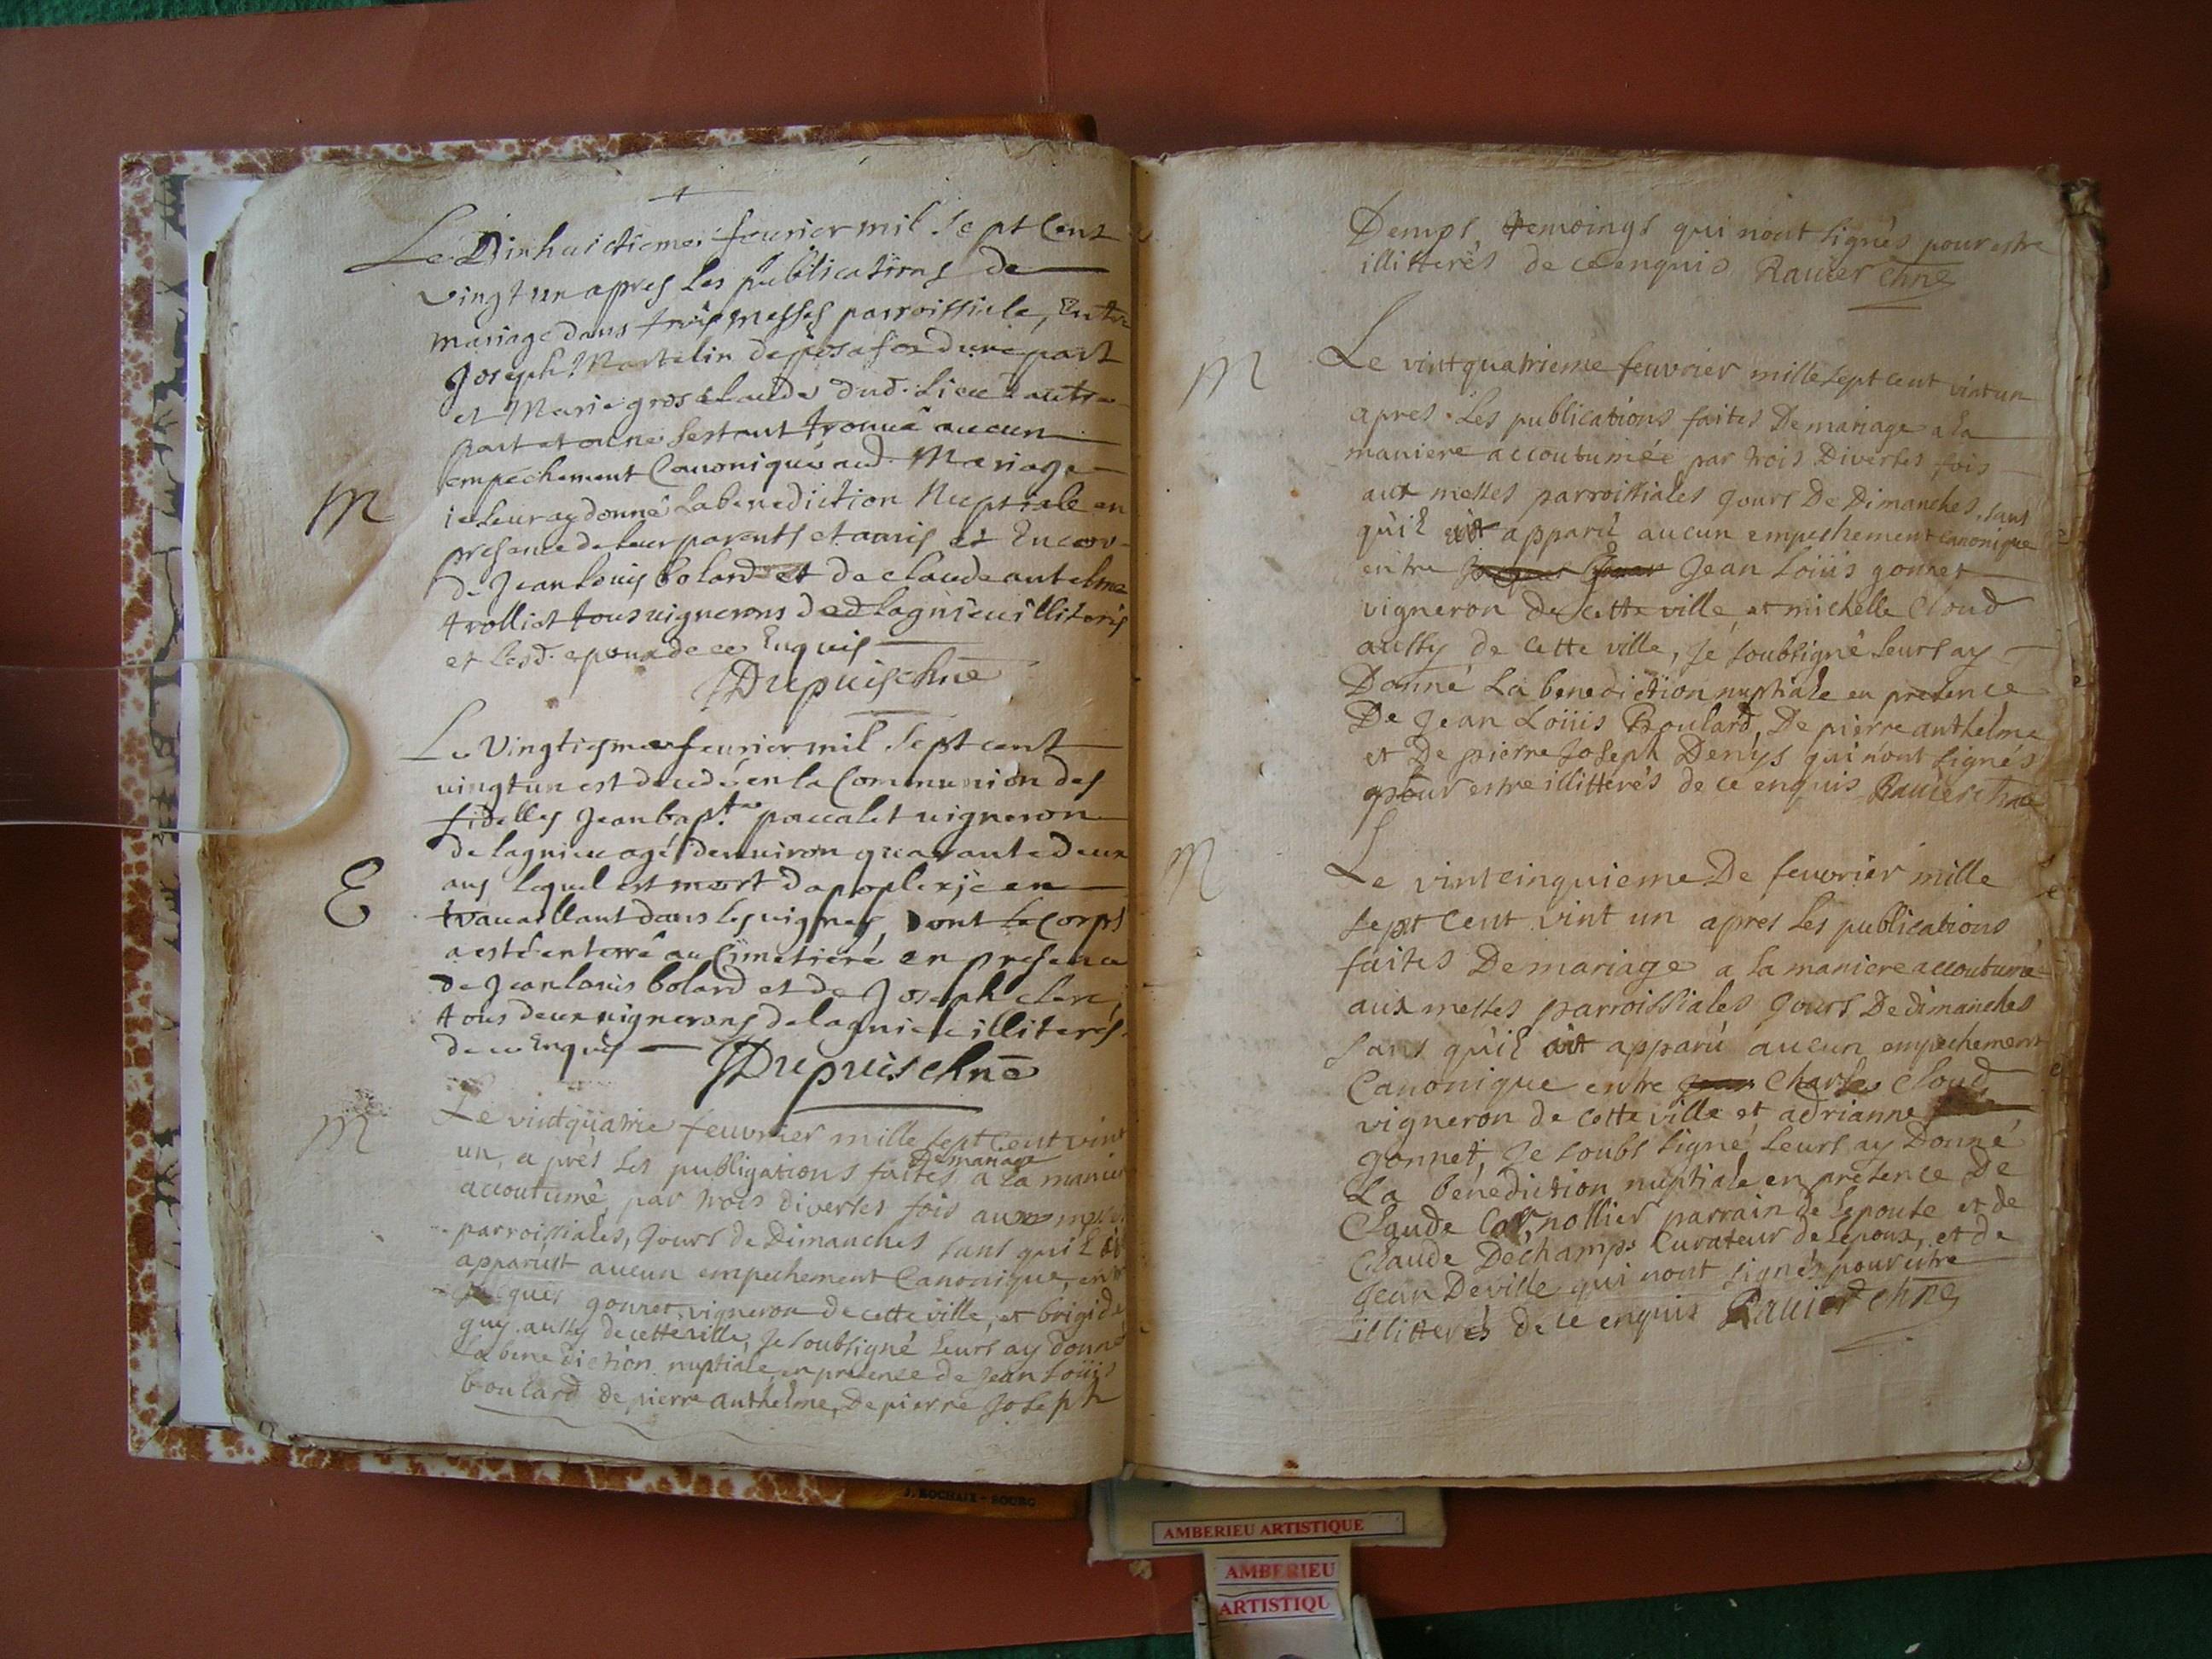 Le Dixhuictieme feurier mil sept Cent
vingt un apres les publications de
mariage dans trois messes parroissiele, Entre
Joseph Martelin de posafor dune part
et Marie gros claude dud. lieu d'autre
part et ne sestant trouué aucun
empechement Canonique aud. Mariage
ie leur ay donné la benediction Nuptiale en
M
presence de leur parents et amis et Encor
de Jean louis bolard et de claude antelme
trolliet tous vignerons de lagnieu illiteris
et lesd. epoux de ce Enquis
Dupuis chne
Le Vingtiesme feurier mil sept cent
uingt un est decedé en la Communion des
fidelles Jean bapt.te paccalet uigneron
de lagnieu agé denuiron quarante deux
E
ans lequel est mort dapoplexie en
trauaillant dans les uignes, Dont le Corps
a esté enterré au Cimetiere en presence
de Jean louis bolard et de Joseph clerc
tous deux uignerons de lagnieu illiterés
de ce Enquis Dupuis chne
M
Le vintquatrie feuvrier mille sept Cent vint
un, après les publigations faites De mariage a la manier
accoutumé, par trois Diverses fois aux messes
parroissiales, Jours de Dimanches sans qu'il ait
apparust aucun empechement Canonique, entre
Jacques gonnet vigneron de cette ville, et brigide
guy aussy de cette ville, Je soubsigné leurs ay donné
la benediction nuptiale en presence de Jean Loüis
boulard de pierre anthelme, De pierre Joseph
Demps temoings qui n'ont signés pour estre
illitterés de ce enquis Rauier chne
M
Le vintquatrieme feuvrier mille sept cent vintun
apres Les publications faites De mariage a la
maniere accoutumée par trois Diverses fois
aux messes parroissiales Jours De Dimanches, sans
qu'il ait apparû aucun empeshement canonique
entre Jean Loüis gonnet
vigneron De cette ville, et michelle Cloud
aussy de cette ville, Je soubsigné leurs ay
Donné La benediction nuptiale en presence
De Jean Loüis Boulard, De pierre anthelme
et De pierre Joseph Denys qui n'ont signés
pour estre illitterés de ce enquis Rauier chne
M
Le vintcinquieme De feuvrier mille
sept Cent vint un aprés les publications
faites De mariage a la maniere accoutumé
aux messes parroissiales Jours De dimanches
sans qu'il ait apparû aucun empechement
Canonique entre Charles Cloud
vigneron de cette ville et adrianne
gonnet, Je soubs signé leurs ay Donné
La benediction nuptiale en presence De
Claude Cornollier parrain de l'epouse et de
Claude Dechamps Curateur de l'epoux, et de
Jean Deville qui n'ont signés pour estre
illitterés de ce enquis Rauier chne
J. ROCHAIX - BOURG
AMBERIEU ARTISTIQUE
AMBERIEU
ARTISTIQU